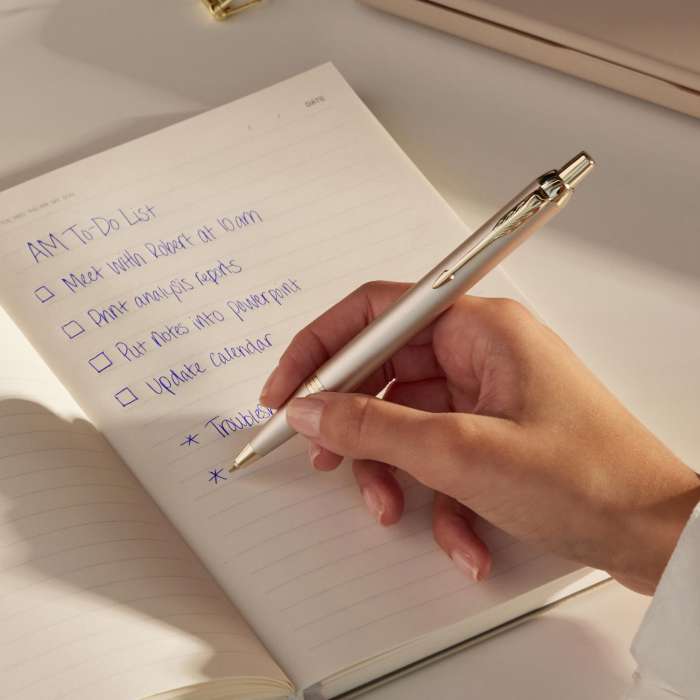 DATE
AM To-Do List
Meet with Robert at 10am
Print analysis reports
Put notes into powerpoint
Update calendar